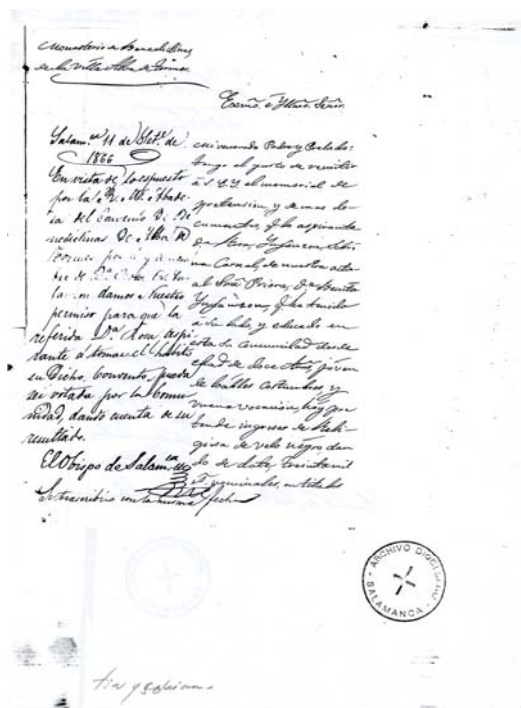 Monasterio de Benedictinas
de la Villa Alba de Tormes
Excmo. é Yltmo. Señor
Salam.ca 11 de Set.e de
1866
En vista de lo espuesto
por la
del Convento de Be
nedictinas de Alba de
Tormes por
damos nuestro
permiso para que la
referida D.a Rosa aspi
rante á tomar el habito
en Dicho Convento, pueda
ser votada por la Comu
nidad, dando cuenta de su
resultado.
El Obispo de Salam.ca
Se transcribió con la misma fecha
mi venerado Padre y Prelado:
tengo el gusto de remitir
á S. E. Y. el memorial de
pretension, y demas do
cumentos, de la aspirante
D.a Rosa
Carnal, de nuestra actu
al Sra Priora, D.a Benita
á su lado, y educada en
esta Comunidad desde
edad de doce años, joven
de costumbres y
buena vocacion, hoy pre
tende ingresar de Reli
giosa de velo negro dan
do de dote, treinta mil
r.s nominales, en titulos
ARCHIVO DIOCESANO
SALAMANCA
tia y sobrina